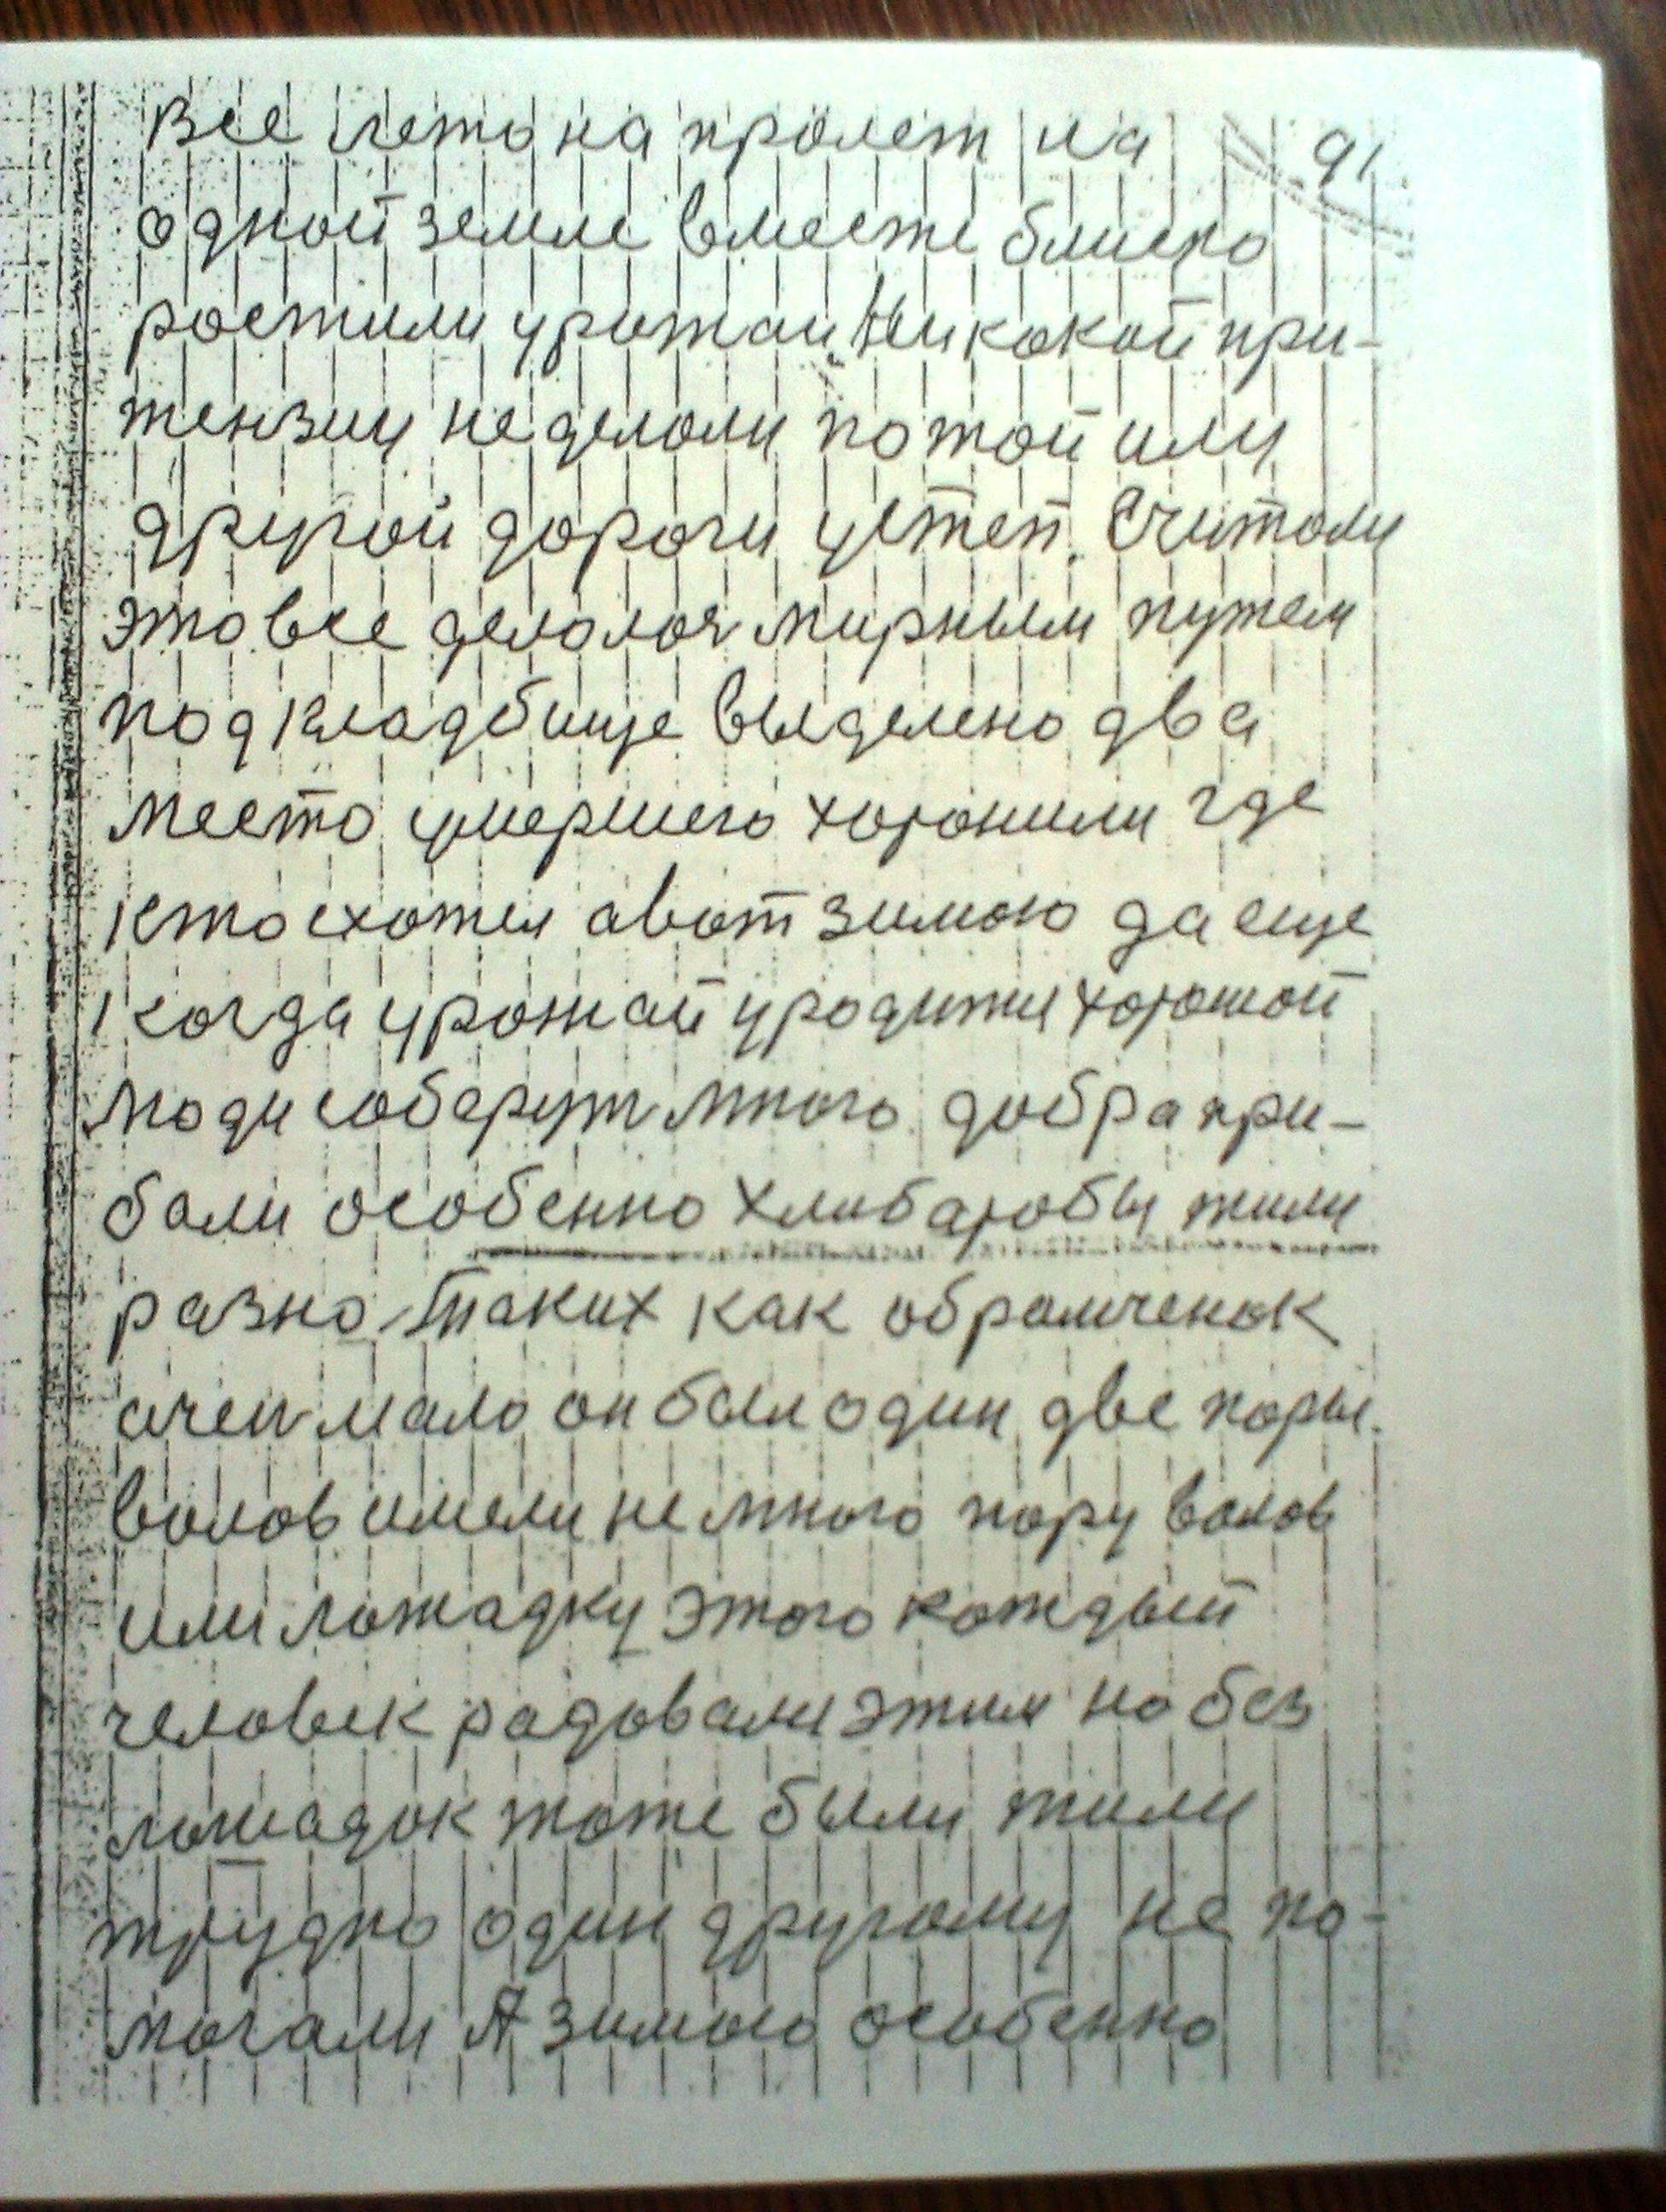 Все лето на пролет на 91
одной земле вместе блиско
ростили урожаи. Никокой при-
тензии не делали по той или
другой дороги устеп. Считоли
это все делолоя мирным путем
под кладбище выделено два
место умершего хоронили где
кто схотел авот зимою да еще
когда урожай уродитя хорошой
люди соберут много добра при-
бали особенно хлибаробы жили
разно. Таких как обрамченок
очен мало он был один две пары.
волов имели не много пару волов
или лошадку этого каждый
человек радовали этим но без
лошадок тоже были жили
трудно один другому не по-
могали А зимою особенно